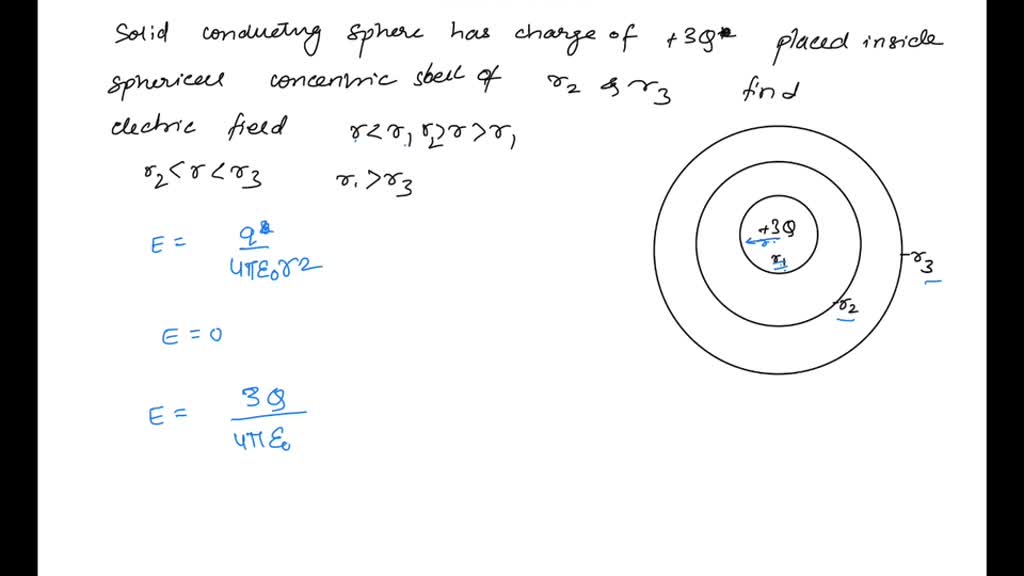 Solid conducting sphere has charge of +3Q placed inside
spherical concentric shell of r2 & r3 find
electric field r<r1 r2>r>r1
r2<r<r3 r.>r3
E = q / 4πε0r2
E = 0
E = 3Q / 4πε0
+3Q
r.
r1
r2
r3